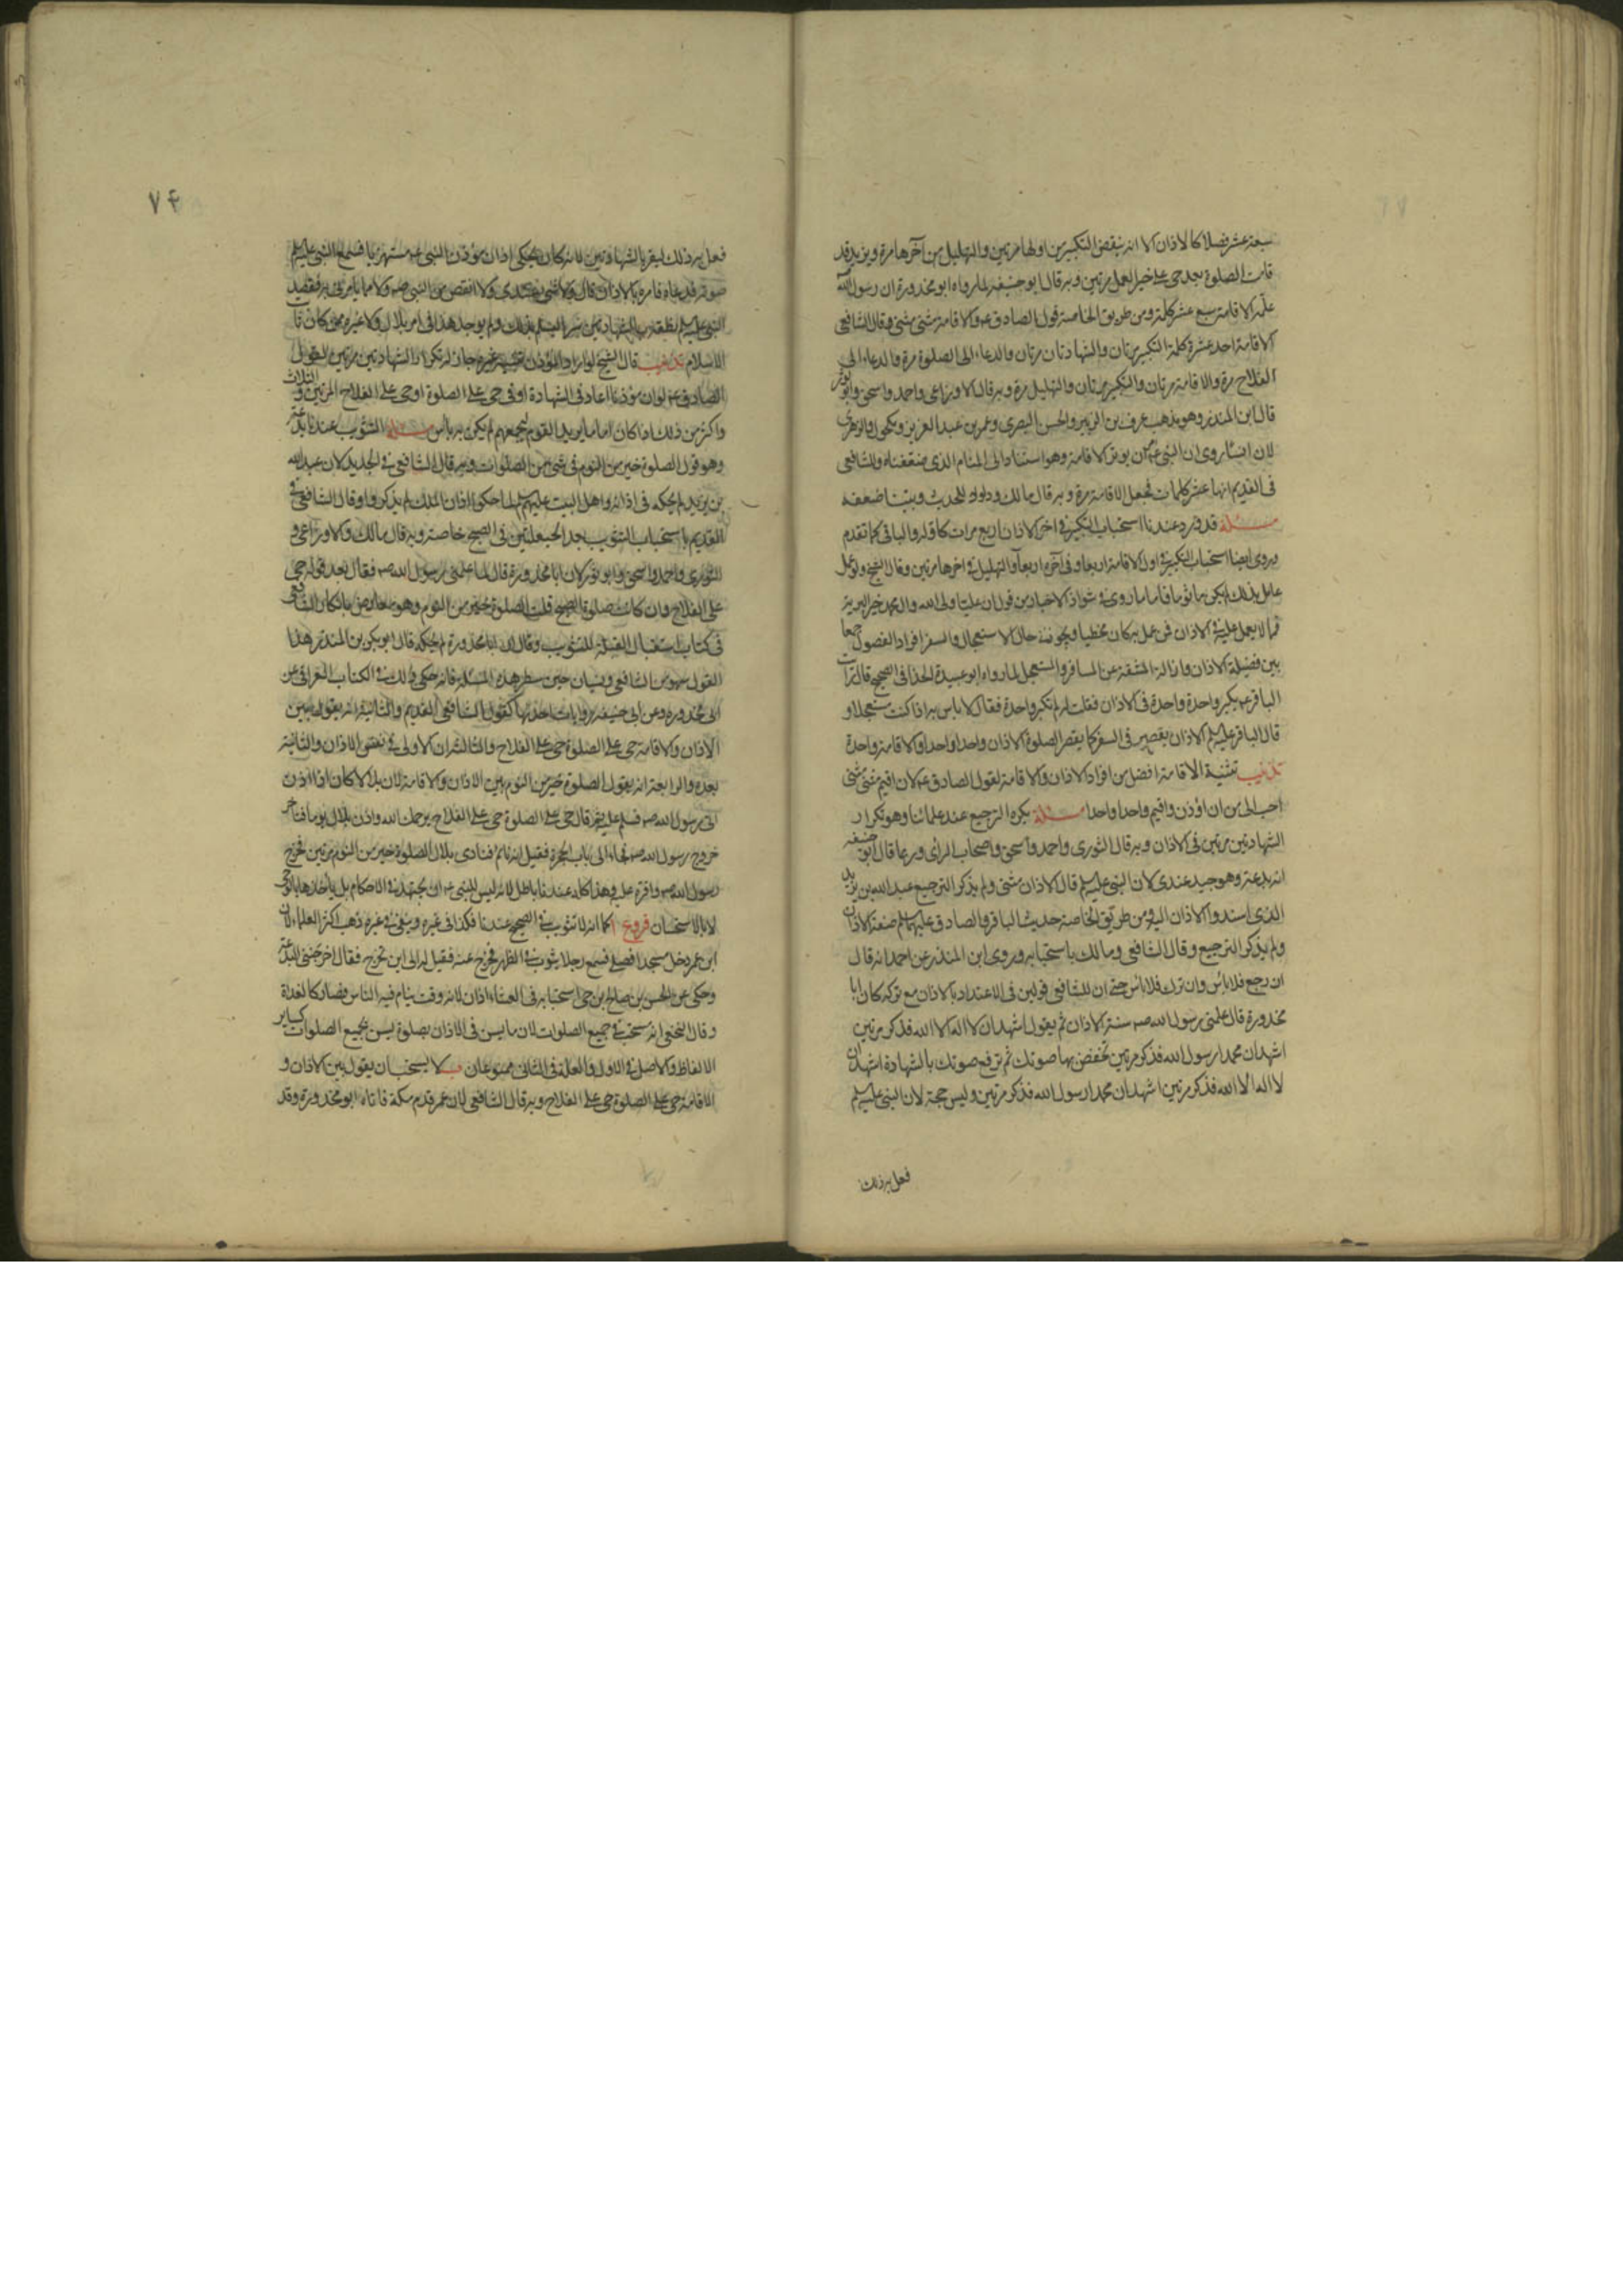 سبعة عشر فصلا كالاذان الا انه ينقص التكبير من اولها مرتين والتهليل من آخرها مرة ويزيد قد
قامت الصلوة بعد حى على خير العمل مرتين وبه قال ابو حنيفه لما رواه ابو محذورة ان رسول الله
علّمه الاقامة سبع عشر كلمة ومن طريق الخاصة قول الصادق عه والاقامة مثنى مثنى وقال الشافعى
الاقامة احد عشرة كلمة التكبير مرتان والشهادتان مرتان والدعاء الى الصلوة مرة والدعاء الى
الفلاح مرة والاقامة مرتان والتكبير مرتان والتهليل مرة وبه قال الاوزاعى واحمد واسحق وابو ثور
قال ابن المنذر وهو مذهب عروة بن الزبير والحسن البصرى وعمر بن عبد العزيز ومكحول والزهرى
لان انسًا روى ان النبى عه ان يوتر الاقامة وهو استنادا الى المنام الذى ضعفناه وللشافعى
فى القديم انها عشر كلمات فجعل الاقامة مرة وبه قال مالك وداود للحديث وبينا ضعفه
مسئلة قد ورد عندنا استحباب التكبير فى اخر الاذان اربع مرات كاوله والباقى كما تقدم
وروى ايضا استحباب التكبير فى اول الاقامة اربعا وفى آخره اربعا والتهليل فى اخرها مرتين وقال الشيخ ولو عمل
عامل بذلك لم يكن ماثوما فاما ما روى فى شواذ الاخبار من قول ان عليا ولى الله وال محمد خير البرية
فما لا يعمل عليه فى الاذان فمن عمل به كان مخطيا ويجوز فى حال الاستعجال والسفر افراد الفصول جمعا
بين فضيلة الاذان وازالة المشقة عن المسافر والمستعجل لما رواه ابو عبيدة الحذا فى الصحيح قال رايت
الباقر عه يكبر واحدة واحدة فى الاذان فقلت له لم تكبر واحدة فقال لا باس به اذا كنت مستعجلا و
قال الباقر عليه السلم الاذان يقصر فى السفر كما يقصر الصلوة الاذان واحدا واحدا والاقامة واحدة
تذنيب تثنية الاقامة افضل من افراد الاذان والاقامة لقول الصادق عه لان اقيم مثنى مثنى
احب الى من ان اؤذن واقيم واحدا واحدا مسئلة يكره الترجيع عند علمائنا وهو تكرار
الشهادتين مرتين فى الاذان وبه قال الثورى واحمد واسحق واصحاب الراى وربما قال ابو حنيفه
انه بدعة وهو جيد عندى لان النبى عليه السلم قال الاذان مثنى ولم يذكر الترجيع عبد الله بن زيد
الذى اسندوا الاذان اليه ومن طريق الخاصة حديث الباقر والصادق عليهما السلم صفة الاذان
ولم يذكر الترجيع وقال الشافعى ومالك باستحبابه وروى ابن المنذر عن احمد انه قال
ان رجع فلا باس وان ترك فلا باس حتى ان للشافعى قولين فى الاعتداد بالاذان مع تركه لان ابا
محذورة قال علمنى رسول الله صه سنة الاذان ثم يقول اشهد ان لا اله الا الله فذكر مرتين
اشهد ان محمدا رسول الله فذكر مرتين تخفض بها صوتك ثم ترفع صوتك بالشهادة اشهد ان
لا اله الا الله فذكر مرتين اشهد ان محمدا رسول الله فذكر مرتين وليس حجة لان النبى عليه السلم
فعل به ذلك
۷۴
فعل به ذلك ليقر بالشهادتين لانه كان يحكى اذان مؤذن النبى عه مستهزيا فسمع النبى عليه السلم
صوته فدعاه فامره بالاذان قال ولا شى عندى ولا انقص من النبى صه ولا مما يامرنى به فقصد
النبى عليه السلم نطقه بالشهادتين سرا ليسلم بذلك ولم يوجد هذا فى امر بلال ولا غيره ممن كان ثا
الاسلام تذنيب قال الشيخ لو اراد المؤذن تنبيه غيره جاز له تكرار الشهادتين مرتين لقول
الصادق عه لو ان مؤذنا اعاد فى الشهادة او فى حى على الصلوة او حى على الفلاح المرتين والثلاث
واكثر من ذلك اذا كان اماما يريد القوم ليجمعهم لم يكن به باس مسئلة التثويب عندنا بدعة
وهو قول الصلوة خير من النوم فى شئ من الصلوات وبه قال الشافعى فى الجديد لان عبد الله
بن زيد لم يحكه فى اذانه واهل البيت عليهم السلم لما حكوا اذان الملك لم يذكروا وقال الشافعى فى
القديم باستحباب التثويب بعد الحيعلتين فى الصبح خاصة وبه قال مالك والاوزاعى و
الثورى واحمد واسحق وابو ثور لان ابا محذورة قال لما علمنى رسول الله صه فقال بعد قوله حى
على الفلاح وان كانت صلوة الصبح قلت الصلوة خير من النوم وهو معارض بانكار الشافعى
فى كتاب استقبال القبلة للتثويب وقال لان ابا محذورة لم يحكه قال ابو بكر بن المنذر هذا
القول سهو من الشافعى ونسيان حين سطر هذه المسئلة فانه حكى ذلك فى الكتاب العراقى عن
ابى محذورة وعن ابى حنيفه روايات احدها كقول الشافعى القديم والثانية انه يقول بين
الاذان والاقامة حى على الصلوة حى على الفلاح والثالثة ان الاولى فى نفس الاذان والثانية
بعده والرابعة انه يقول الصلوة خير من النوم بين الاذان والاقامة لان بلالا كان اذا اذن
اتى رسول الله صه فسلم عليه ثم قال حى على الصلوة حى على الفلاح يرحمك الله واذن بلال يوما فتاخر
خروج رسول الله صه فجاء الى باب الحجرة فقيل انه نائم فنادى بلال الصلوة خير من النوم مرتين فخرج
رسول الله صه واقره عليه وهذا كله عندنا باطل لانه ليس للنبى عه ان يجتهد فى الاحكام بل ياخذها بالوحى
لا بالاستحسان فروع ا كما انه لا تثويب فى الصبح عندنا فكذا فى غيره وينفى فى غيره ذهب اكثر العلماء لان
ابن عمر دخل مسجدا فصلى فسمع رجلا يثوب فى الظهر فخرج عنه فقيل له الى اين تخرج فقال اخرجتنى البدعة
وحكى عن الحسن بن صالح بن حى استحبابه فى العشاء اذان لانه وقت ينام فيه الناس فصار كالغداة
وقال النخعى انه مستحب فى جميع الصلوات لان ما يسن فى الاذان لصلوة يسن لجميع الصلوات كساير
الالفاظ والاصل فى الاول والعلة فى الثانى ممنوعان ب لا يستحب ان يقول بين الاذان و
الاقامة حى على الصلوة حى على الفلاح وبه قال الشافعى لان عمر قدم مكة فاتاه ابو محذورة وقد